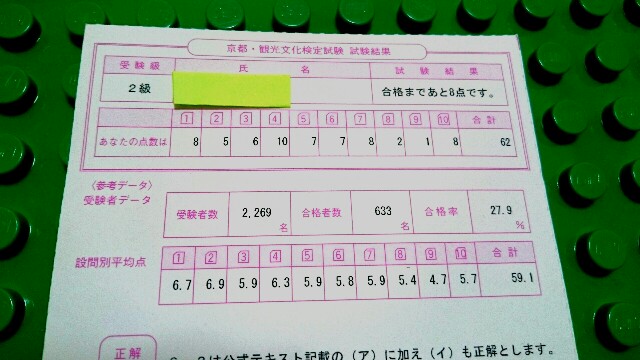 京都・観光文化検定試験 試験結果
受験級 氏 名 試験結果
2級 合格まであと8点です。
1 2 3 4 5 6 7 8 9 10 合計
あなたの点数は 8 5 6 10 7 7 8 2 1 8 62
〈参考データ〉
受験者データ 受験者数 2,269名 合格者数 633名 合格率 27.9%
1 2 3 4 5 6 7 8 9 10 合計
設問別平均点 6.7 6.9 5.9 6.3 5.9 5.8 5.9 5.4 4.7 5.7 59.1
正解 は公式テキスト記載の（ア）に加え（イ）も正解とします。